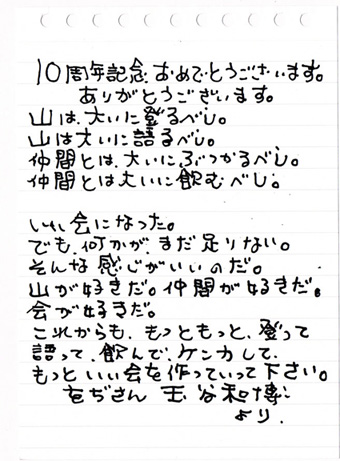 10周年記念、おめでとうございます。
ありがとうございます。
山は、大いに登るべし。
山は大いに語るべし。
仲間とは、大いにぶつかるべし。
仲間とは大いに飲むべし。
いい会になった。
でも、何かが、まだ足りない。
そんな感じがいいのだ。
山が好きだ。仲間が好きだ。
会が好きだ。
これからも、もっともっと、登って
語って、飲んで、ケンカして、
もっといい会を作っていって下さい。
をぢさん 玉谷和博
より。